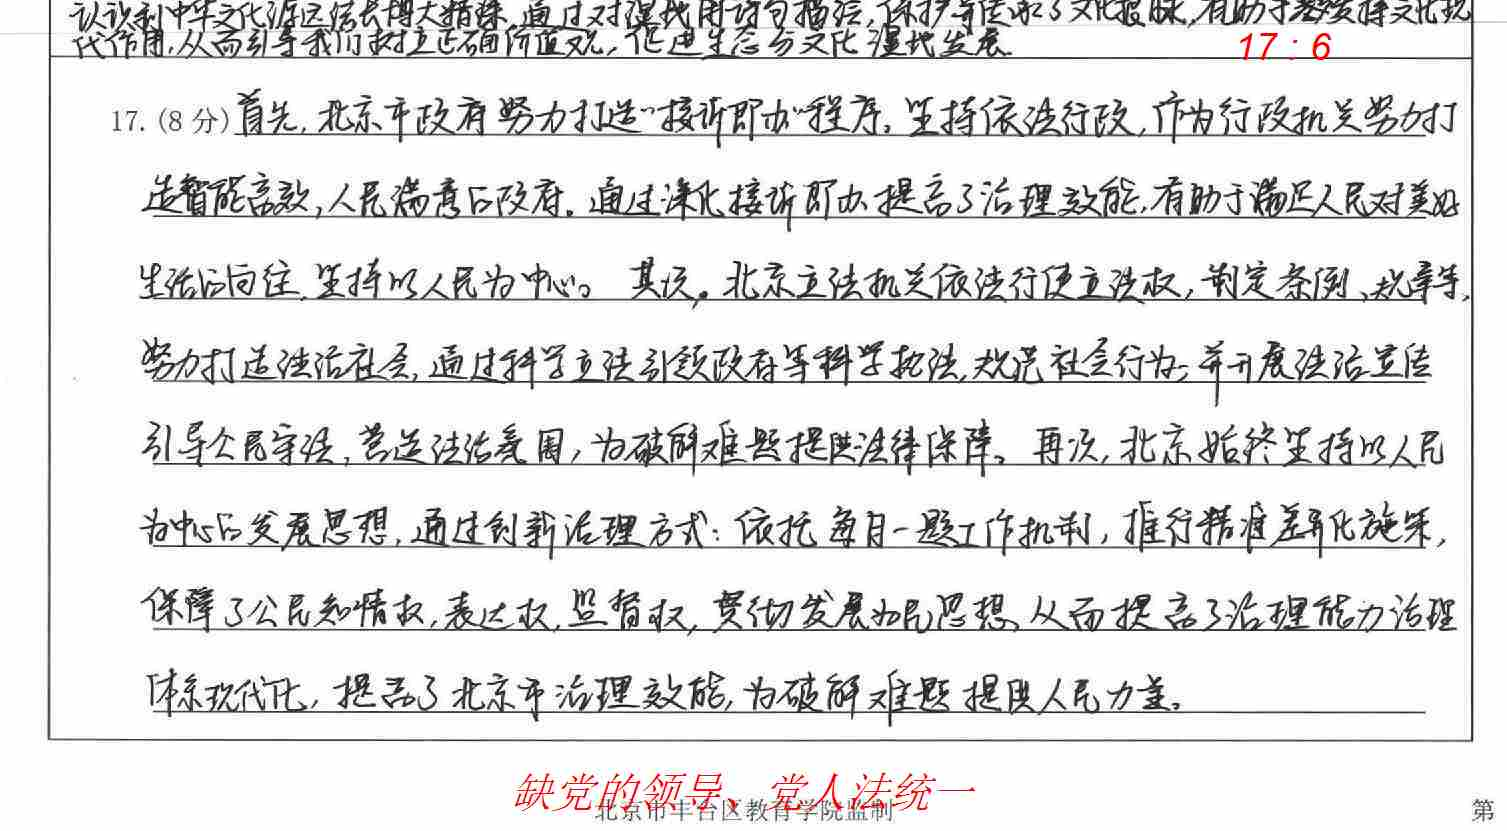 认识到中华文化源远流长博大精深,通过对湿地用诗句描绘,保护等传承了文化根脉,有助于发挥文化现
代作用,从而引导我们树立正确价值观,促进生态与文化湿地发展。
17:6
17.(8分)首先,北京市政府努力打造“接诉即办”程序。坚持依法行政,作为行政机关努力打
造智能高效,人民满意的政府。通过深化接诉即办提高了治理效能,有助于满足人民对美好
生活的向往,坚持以人民为中心。其次,北京立法机关依法行使立法权,制定条例、规章等,
努力打造法治社会,通过科学立法引领政府等科学执法,规范社会行为;并开展法治宣传
引导公民守法,营造法治氛围,为破解难题提供法律保障。再次,北京始终坚持以人民
为中心的发展思想,通过创新治理方式:依托每月一题工作机制,推行精准差异化施策,
保障了公民知情权,表达权,监督权,贯彻发展为民思想,从而提高了治理能力治理
体系现代化,提高了北京市治理效能,为破解难题提供人民力量。
缺党的领导、党人法统一
北京市丰台区教育学院监制
第